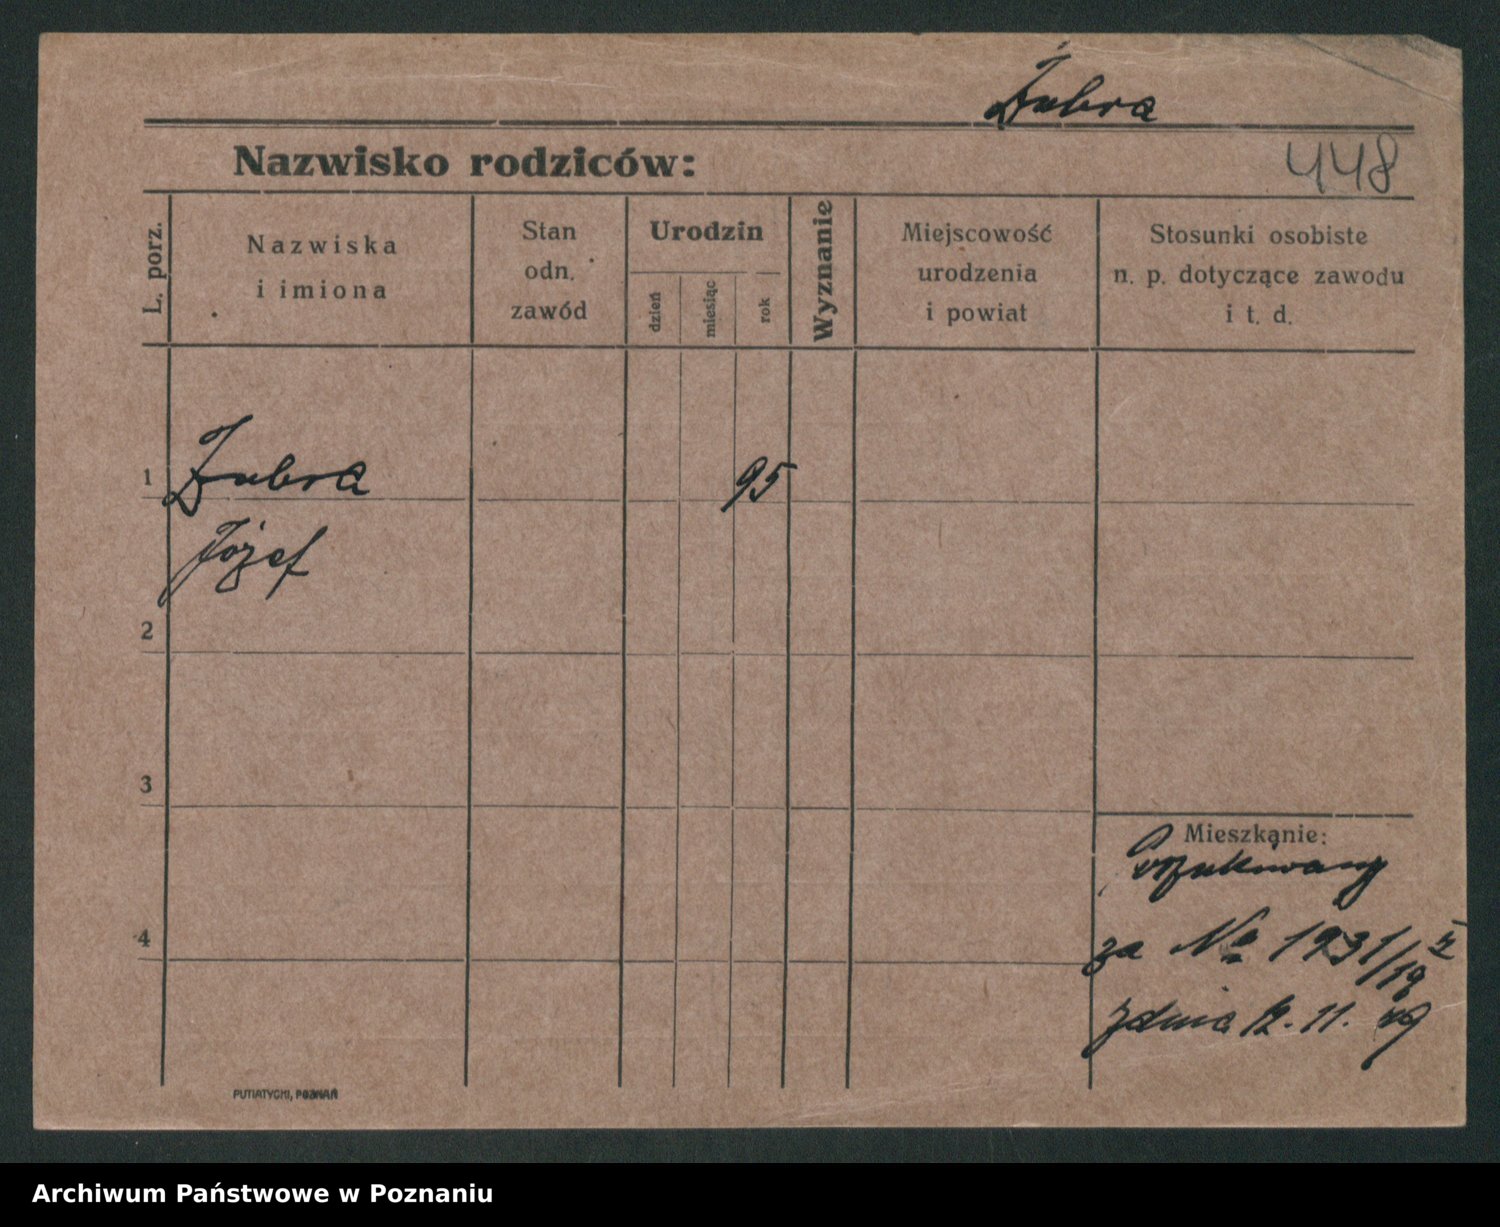 Żubra
Nazwisko rodziców:
448
L. porz.
Nazwiska
i imiona
Stan
odn.
zawód
Urodzin
dzień
miesiąc
rok
Wyznanie
Miejscowość
urodzenia
i powiat
Stosunki osobiste
n. p. dotyczące zawodu
i t. d.
1
Żubra
95
Józef
2
3
Mieszkanie:
Poszukiwany
4
za No 1931/19
z dnia 12. 11. 29
PUTIATYCKI, POZNAŃ
Archiwum Państwowe w Poznaniu